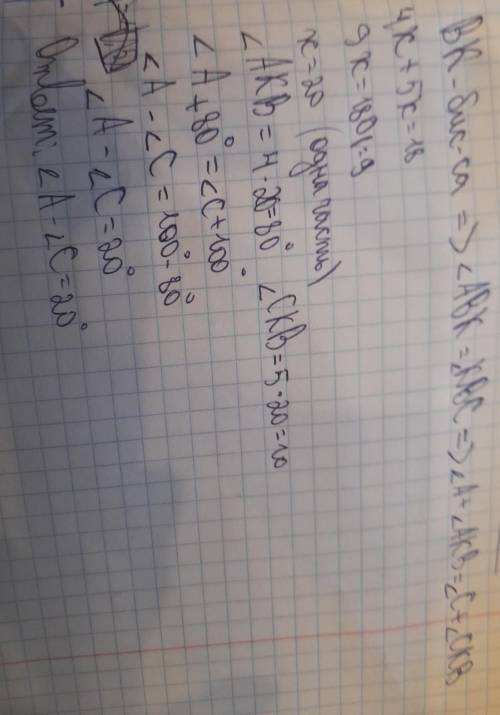 BK - бис-са => ∠ABK = ∠KBC => ∠A + ∠AKB = ∠C + ∠CKB
4x + 5x = 18
9x = 180 |:9
x = 20 (одна часть)
∠AKB = 4·20 = 80° ∠CKB = 5·20 = 10
∠A + 80° = ∠C + 100°
∠A - ∠C = 100° - 80°
∠A - ∠C = 20°
Ответ: ∠A - ∠C = 20°